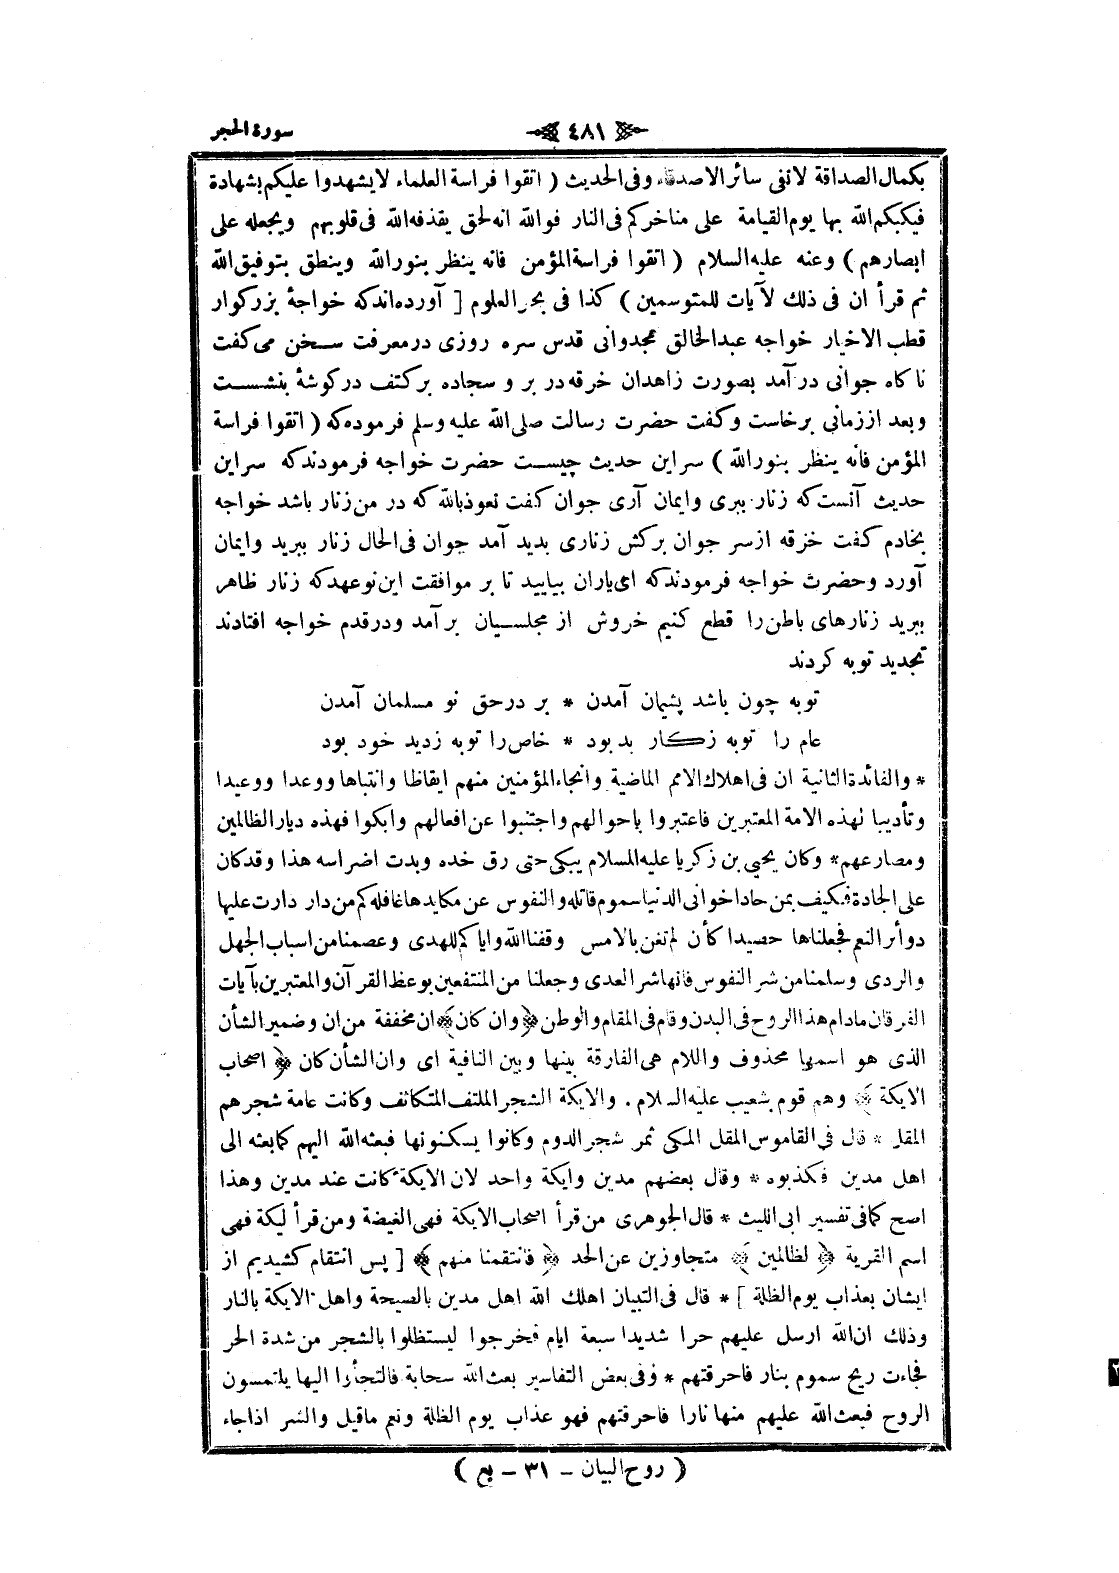 سورة الحجر
٤٨١
بكمال الصداقة لا تنفى سائر الاصدقاء وفى الحديث ( اتقوا فراسة العلماء لا يشهدوا عليكم بشهادة
فيكبكم الله بها يوم القيامة على مناخركم فى النار فوالله انه لحق يقذفه الله فى قلوبهم ويجعله على
ابصارهم ) وعنه عليه السلام ( اتقوا فراسة المؤمن فانه ينظر بنور الله وينطق بتوفيق الله
ثم قرأ ان فى ذلك لآيات للمتوسمين ) كذا فى بحر العلوم [ آورده‌اند كه خواجۀ بزركوار
قطب الاخيار خواجه عبد الخالق عجدوانى قدس سره روزى در معرفت سخن مى كفت
نا كاه جوانى در آمد بصورت زاهدان خرقه در بر و سجاده بر كتف در كوشۀ بنشست
وبعد از زمانى بر خاست و كفت حضرت رسالت صلى الله عليه وسلم فرموده كه ( اتقوا فراسة
المؤمن فانه ينظر بنور الله ) سر اين حديث چيست حضرت خواجه فرمودند كه سر اين
حديث آنست كه زنار ببرى وايمان آرى جوان كفت نعوذ بالله كه در من زنار باشد خواجه
بخادم كفت خرقه از سر جوان بر كش زنارى بديد آمد جوان فى الحال زنار ببريد وايمان
آورد وحضرت خواجه فرمودند كه اى ياران بياييد تا بر موافقت اين نو عهد كه زنار ظاهر
ببريد زنارهاى باطن را قطع كنيم خروش از مجلسيان بر آمد ودر قدم خواجه افتادند
تجديد توبه كردند
توبه چون باشد پشيمان آمدن * بر در حق نو مسلمان آمدن
عام را توبه ز كار بد بود * خاص را توبه ز ديد خود بود
* والفائدة الثانية ان فى اهلاك الامم الماضية وانجاء المؤمنين منهم ايقاظا وانتباها ووعدا ووعيدا
وتأديبا لهذه الامة المعتبرين فاعتبروا باحوالهم واجتنبوا عن افعالهم وابكوا فهذه ديار الظالمين
ومصارعهم * وكان يحيى بن زكريا عليه السلام يبكى حتى رق خده وبدت اضراسه هذا وقد كان
على الجادة فكيف بمن حاد اخوانى الدنيا سموم قاتلة والنفوس عن مكايدها غافلة كم من دار دارت عليها
دوائر النعم فجعلناها حصيدا كأن لم تغن بالامس وفقنا الله واياكم للهدى وعصمنا من اسباب الجهل
والردى وسلمنا من شر النفوس فانها شر العدى وجعلنا من المنتفعين بوعظ القرآن والمعتبرين بآيات
الفرقان مادام هذا الروح فى البدن وقام فى المقام والوطن ﴿ وان كان ﴾ ان مخففة من ان وضمير الشأن
الذى هو اسمها محذوف واللام هى الفارقة بينها وبين النافية اى وان الشأن كان ﴿ اصحاب
الايكة ﴾ وهم قوم شعيب عليه السلام . والايكة الشجر الملتف المتكاثف وكانت عامة شجرهم
المقل * قال فى القاموس المقل المكى ثمر شجر الدوم وكانوا يسكنونها فبعثه الله اليهم كما بعثه الى
اهل مدين فكذبوه * وقال بعضهم مدين وايكة واحد لان الايكة كانت عند مدين وهذا
اصح كما فى تفسير ابى الليث * قال الجوهرى من قرأ اصحاب الايكة فهى الغيضة ومن قرأ ليكة فهى
اسم القرية ﴿ لظالمين ﴾ متجاوزين عن الحد ﴿ فانتقمنا منهم ﴾ [ پس انتقام كشيديم از
ايشان بعذاب يوم الظلة ] * قال فى التبيان اهلك الله اهل مدين بالصيحة واهل الايكة بالنار
وذلك ان الله ارسل عليهم حرا شديدا سبعة ايام فخرجوا ليستظلوا بالشجر من شدة الحر
فجاءت ريح سموم بنار فاحرقتهم * وفى بعض التفاسير بعث الله سحابة فالتجأوا اليها يلتمسون
الروح فبعث الله عليهم منها نارا فاحرقتهم فهو عذاب يوم الظلة ونعم ماقيل والشر اذا جاء
( روح البيان - ٣١ - بع )